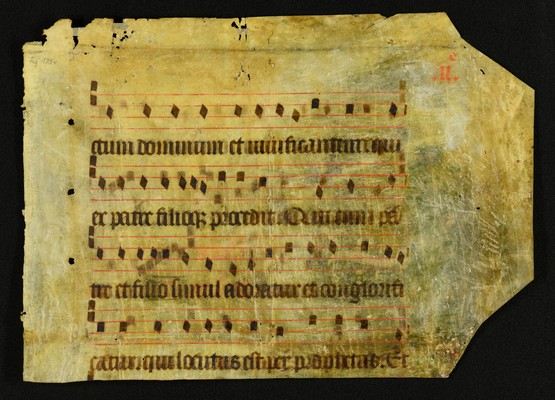 ctum dominum et uiuificantem qui
ex patre filioq; procedit. Qui cum pa
tre et filio simul adoratur et conglorifi
catur. qui locutus est per prophetas. Et